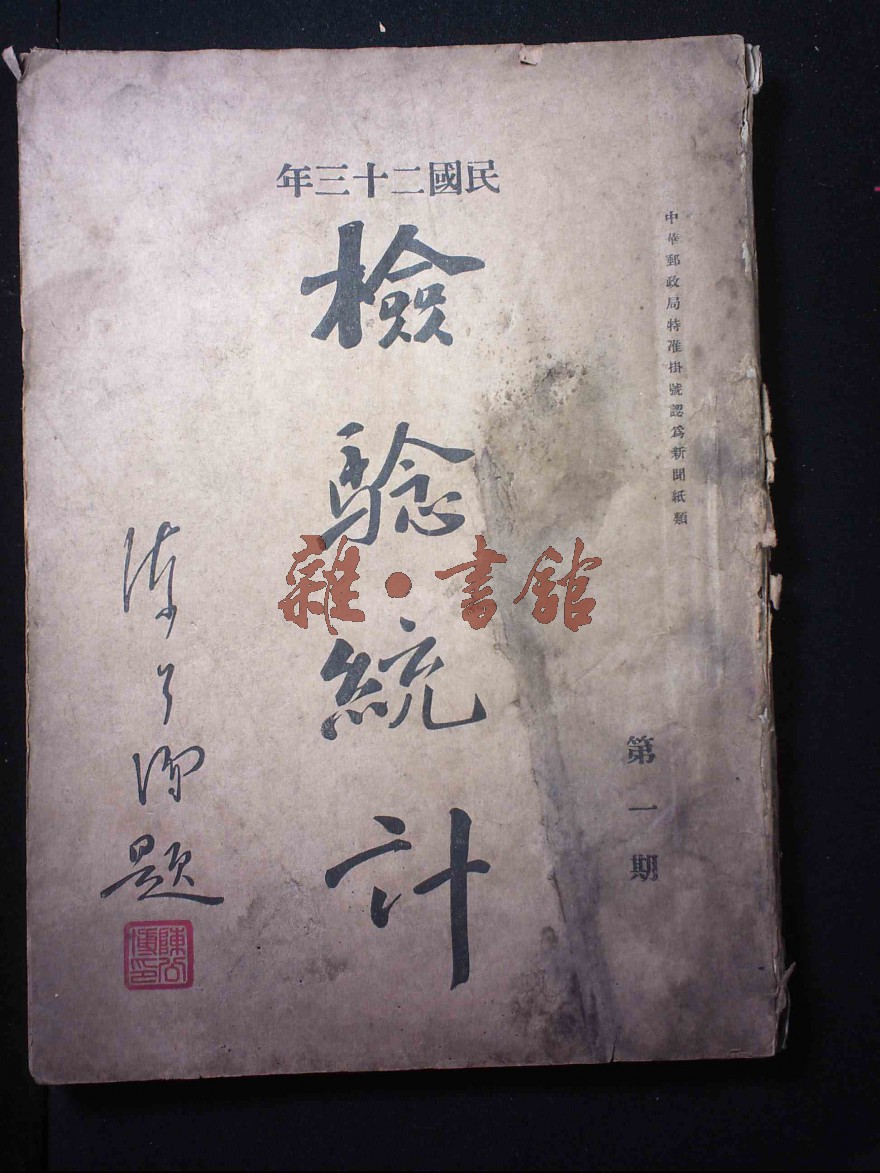 民國二十三年
中華郵政局特准掛號認為新聞紙類
第一期
檢驗統計
陳公博題
陳公博印
雜·書館